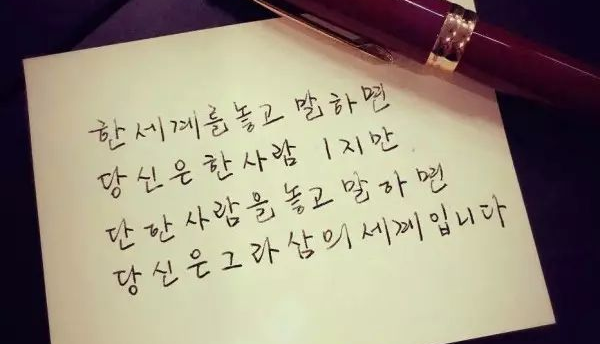 한 세계를 놓고 말하면
당신은 한 사람 1지만
단 한 사람을 놓고 말하면
당신은 그 라삼의 세계입니다